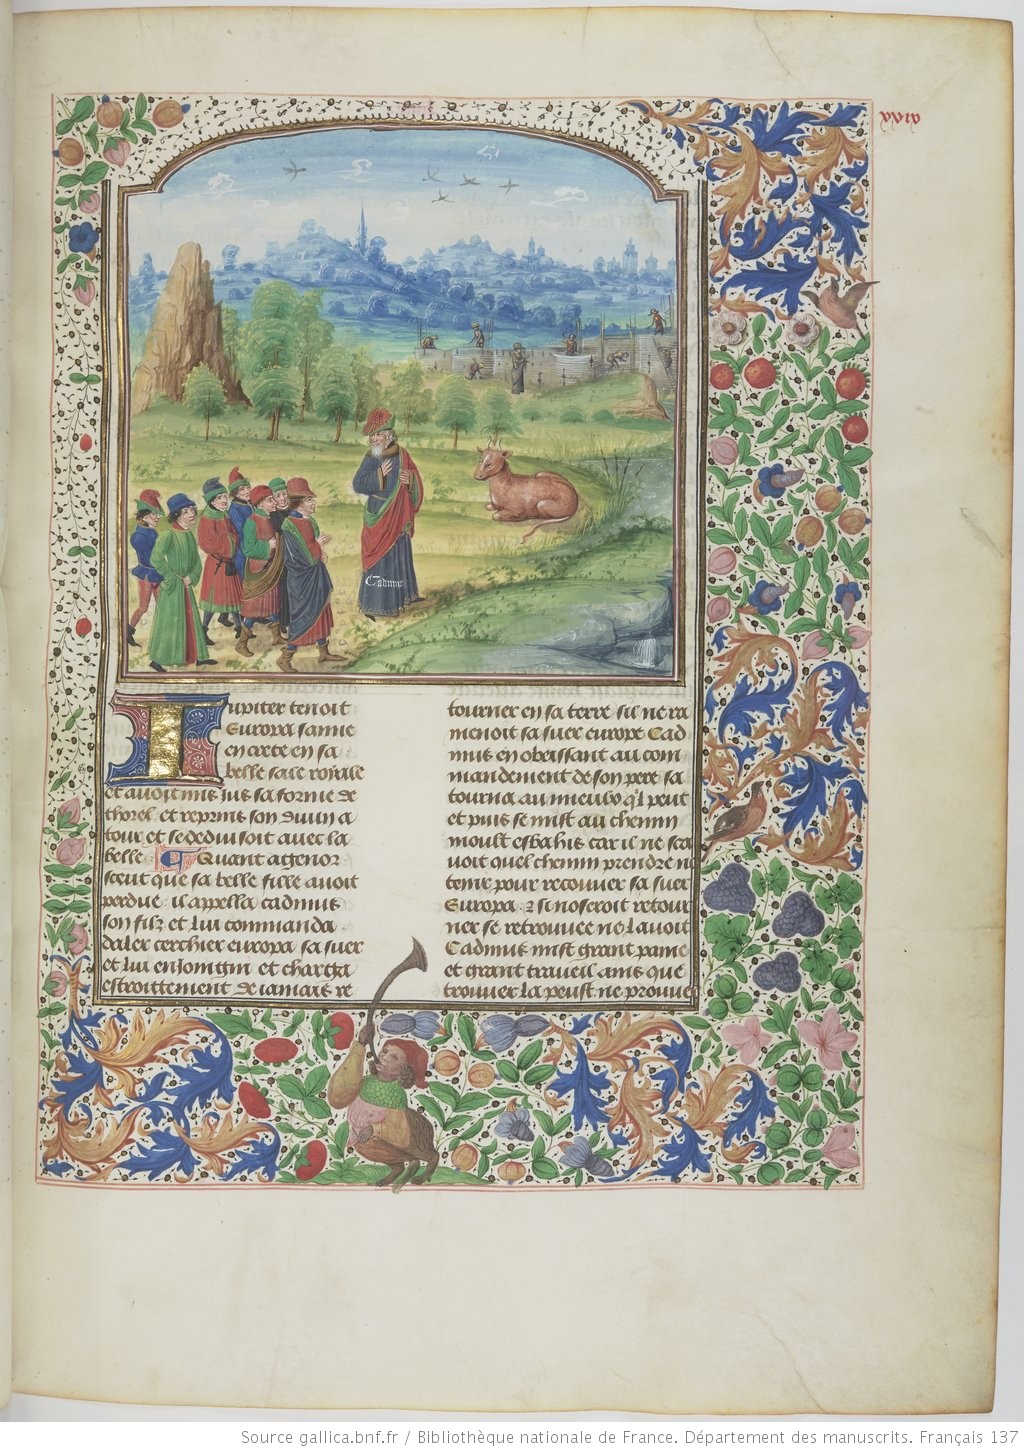 xxix
Cadmus
Jupiter tenoit
Europa samie
en crete en sa
belle sale roiale
et auoit mis jus sa forme de
thorel et reprins son diuin a
tour et se deduisoit auec la
belle Quant agenor
sceut que sa belle fille auoit
perdue il appella cadmus
son filz et lui commanda
daler cerchier europa sa suer
et lui enjoingni et charga
estroittement de iamais re
tourner en sa terre sil ne ra
menoit sa suer europe Cad
mus en obeissant au com
mandement de son pere sa
tourna au mieulx ql peut
et puis se mist au chemin
moult esbahis car il ne sca
uoit quel chemin prendre ne
tenir pour recouurer sa suer
Europa et si noseroit retour
ner se retrouuee ne lauoit
Cadmus mist grant paine
et grant traueil ains que
trouuer la peust ne prouuer
Source gallica.bnf.fr / Bibliothèque nationale de France. Département des manuscrits. Français 137